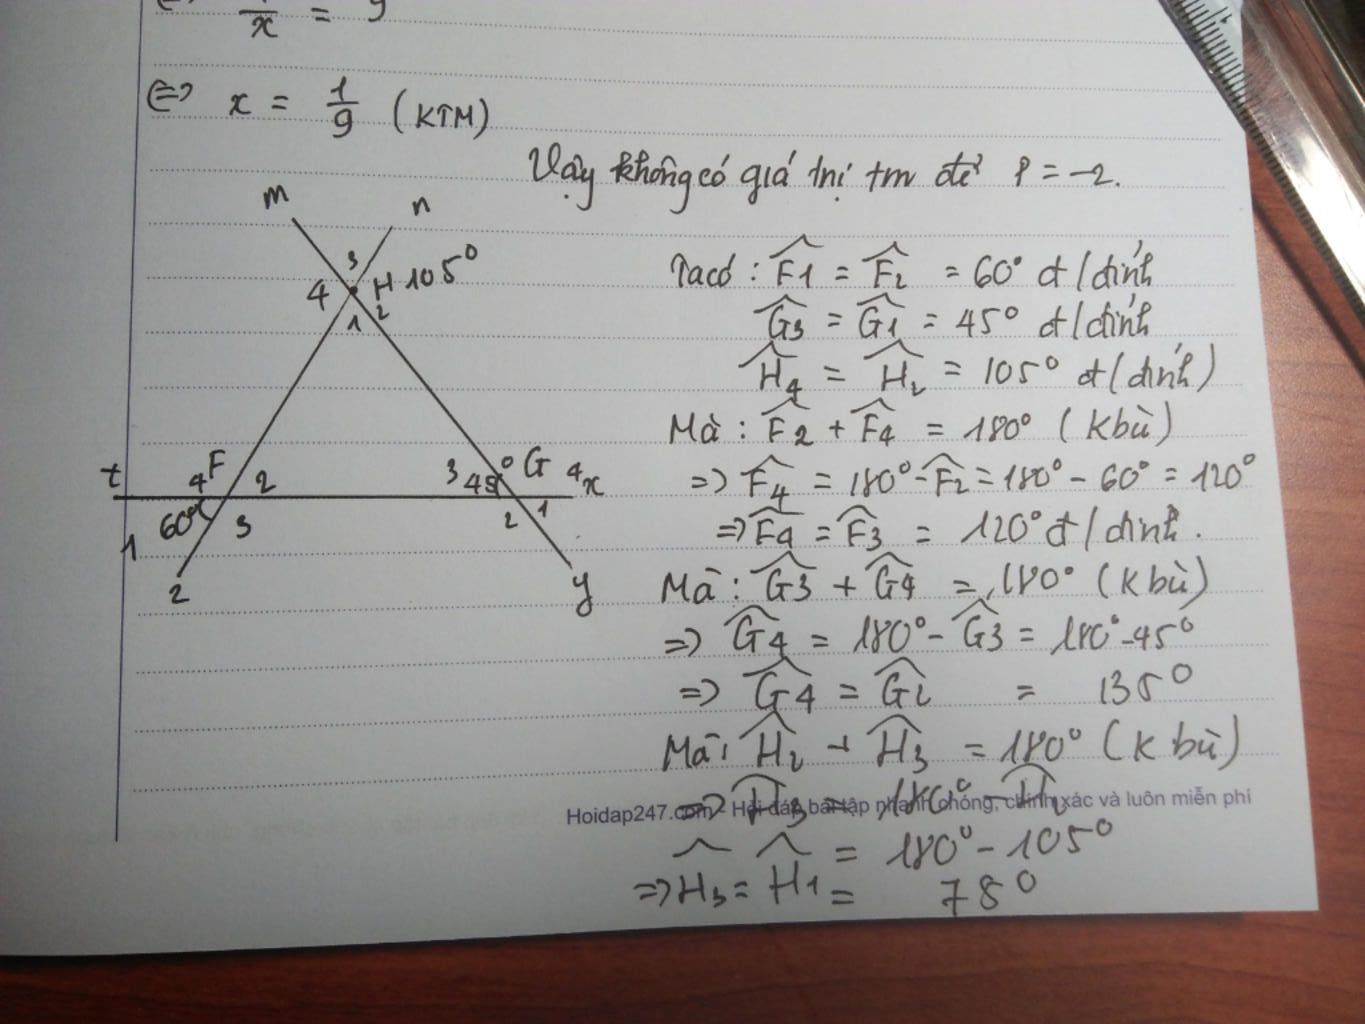 x = 9
⇔ x = 1/9 (KTM)
Vậy không có giá trị tm để P = -2.
m
n
3
4 H 105°
1 2
t
4 F 2
3 45° G 4 x
60° 3
2 1
1
2
y
Ta có : F1 = F2 = 60° đ/đỉnh
G3 = G1 = 45° đ/đỉnh
H4 = H2 = 105° đ(đỉnh)
Mà : F2 + F4 = 180° (K bù)
=> F4 = 180° - F2 = 180° - 60° = 120°
=> F4 = F3 = 120° đ/đỉnh.
Mà : G3 + G4 = 180° (K bù)
=> G4 = 180° - G3 = 180° - 45°
=> G4 = G2 = 135°
Mà : H2 + H3 = 180° (K bù)
=> H3 = 180° - H2
Hoidap247.com - Hỏi đáp bài tập nhanh chóng, chính xác và luôn miễn phí
= 180° - 105°
=> H3 = H1 = 78°